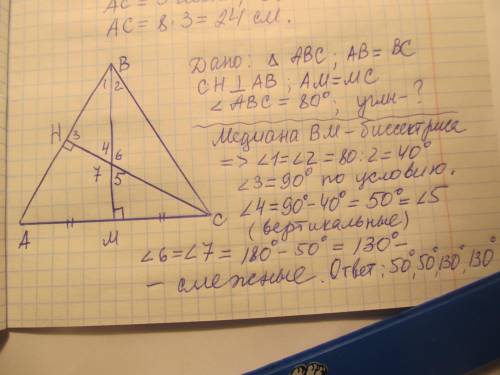 AC = 8·3 = 24 см.
Дано: △ ABC; AB = BC
CH ⊥ AB; AM = MC
∠ ABC = 80°; углы - ?
Медиана BM - биссектриса
=> ∠1 = ∠2 = 80 : 2 = 40°
∠3 = 90° по условию.
∠4 = 90° - 40° = 50° = ∠5
(вертикальные)
∠6 = ∠7 = 180° - 50° = 130° -
- смежные. Ответ: 50°, 50°, 130°, 130°
B
1 2
H 3
4 6
7 5
A M C